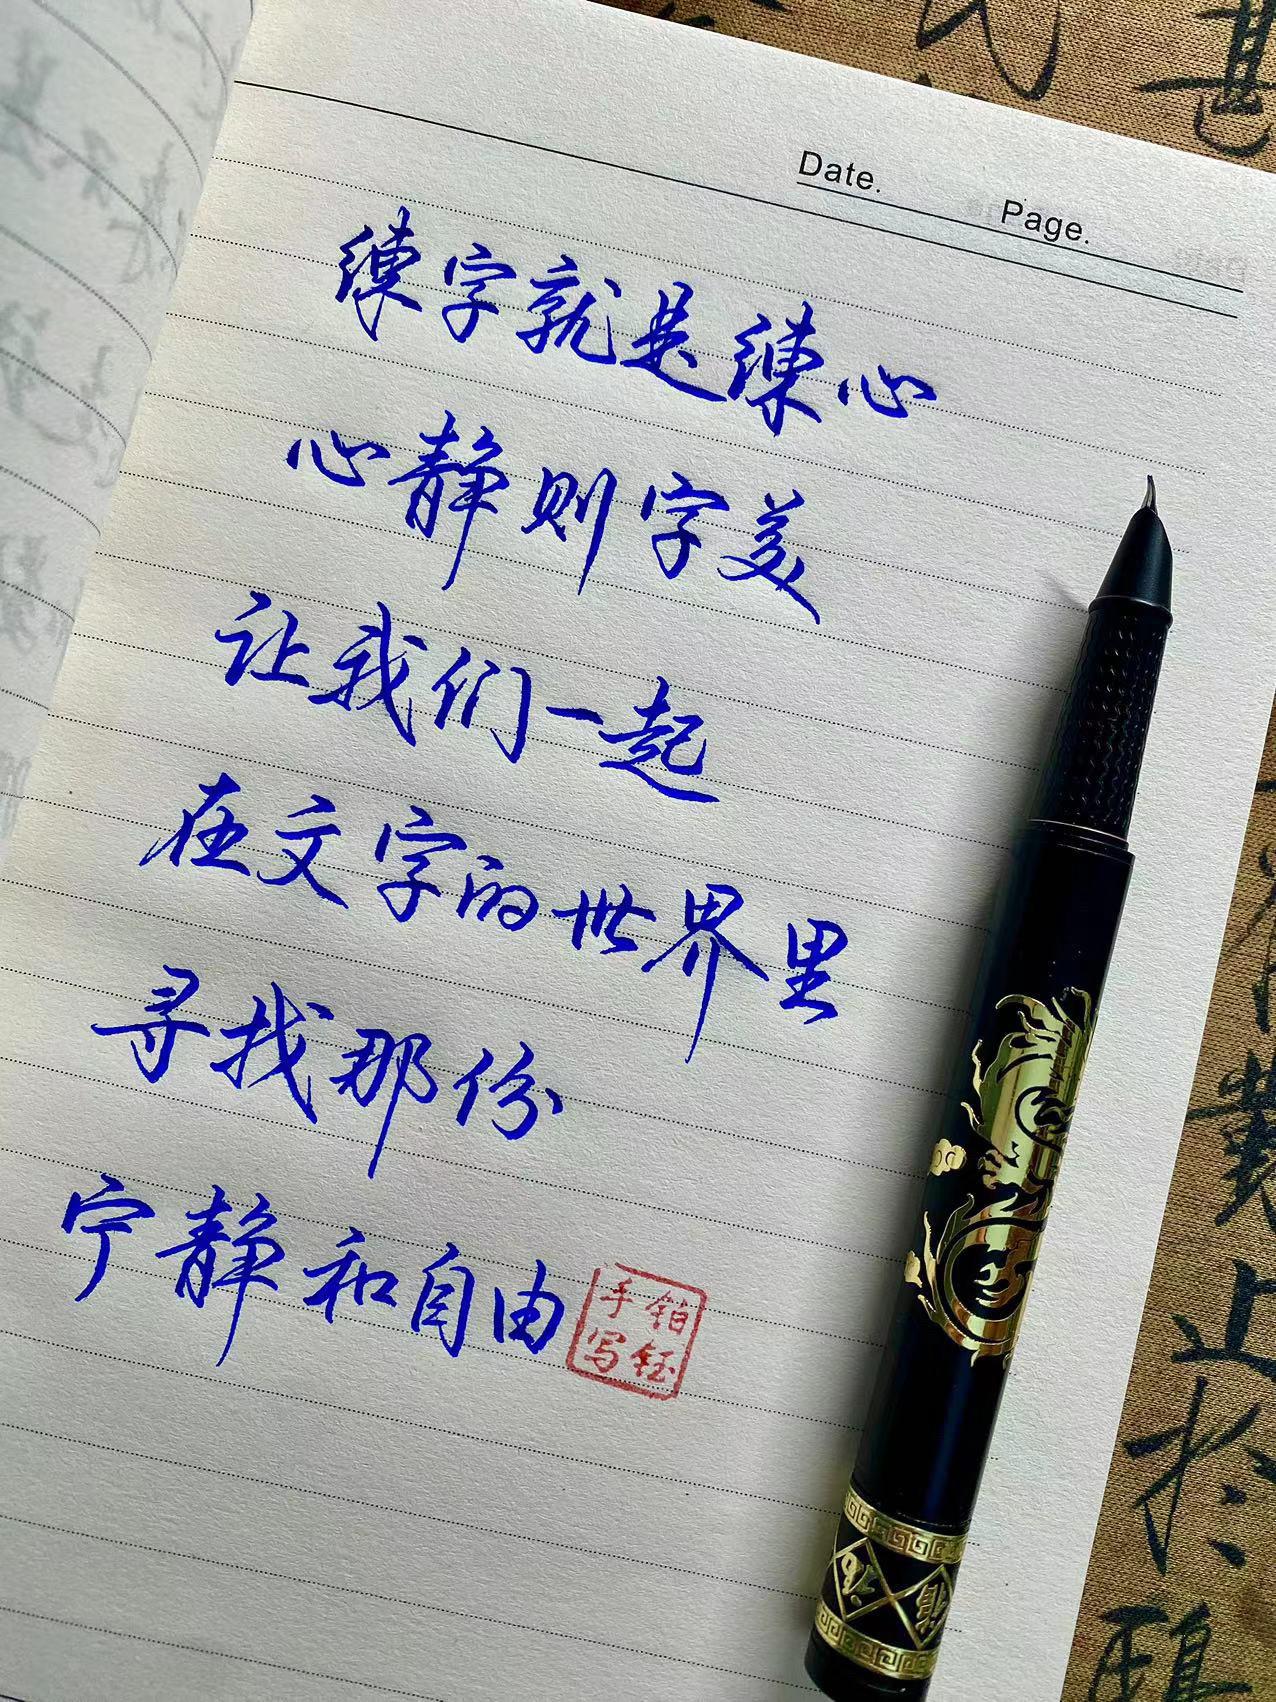 Date.
Page.
练字就是练心
心静则字美
让我们一起
在文字的世界里
寻找那份
宁静和自由
铂钰
手写